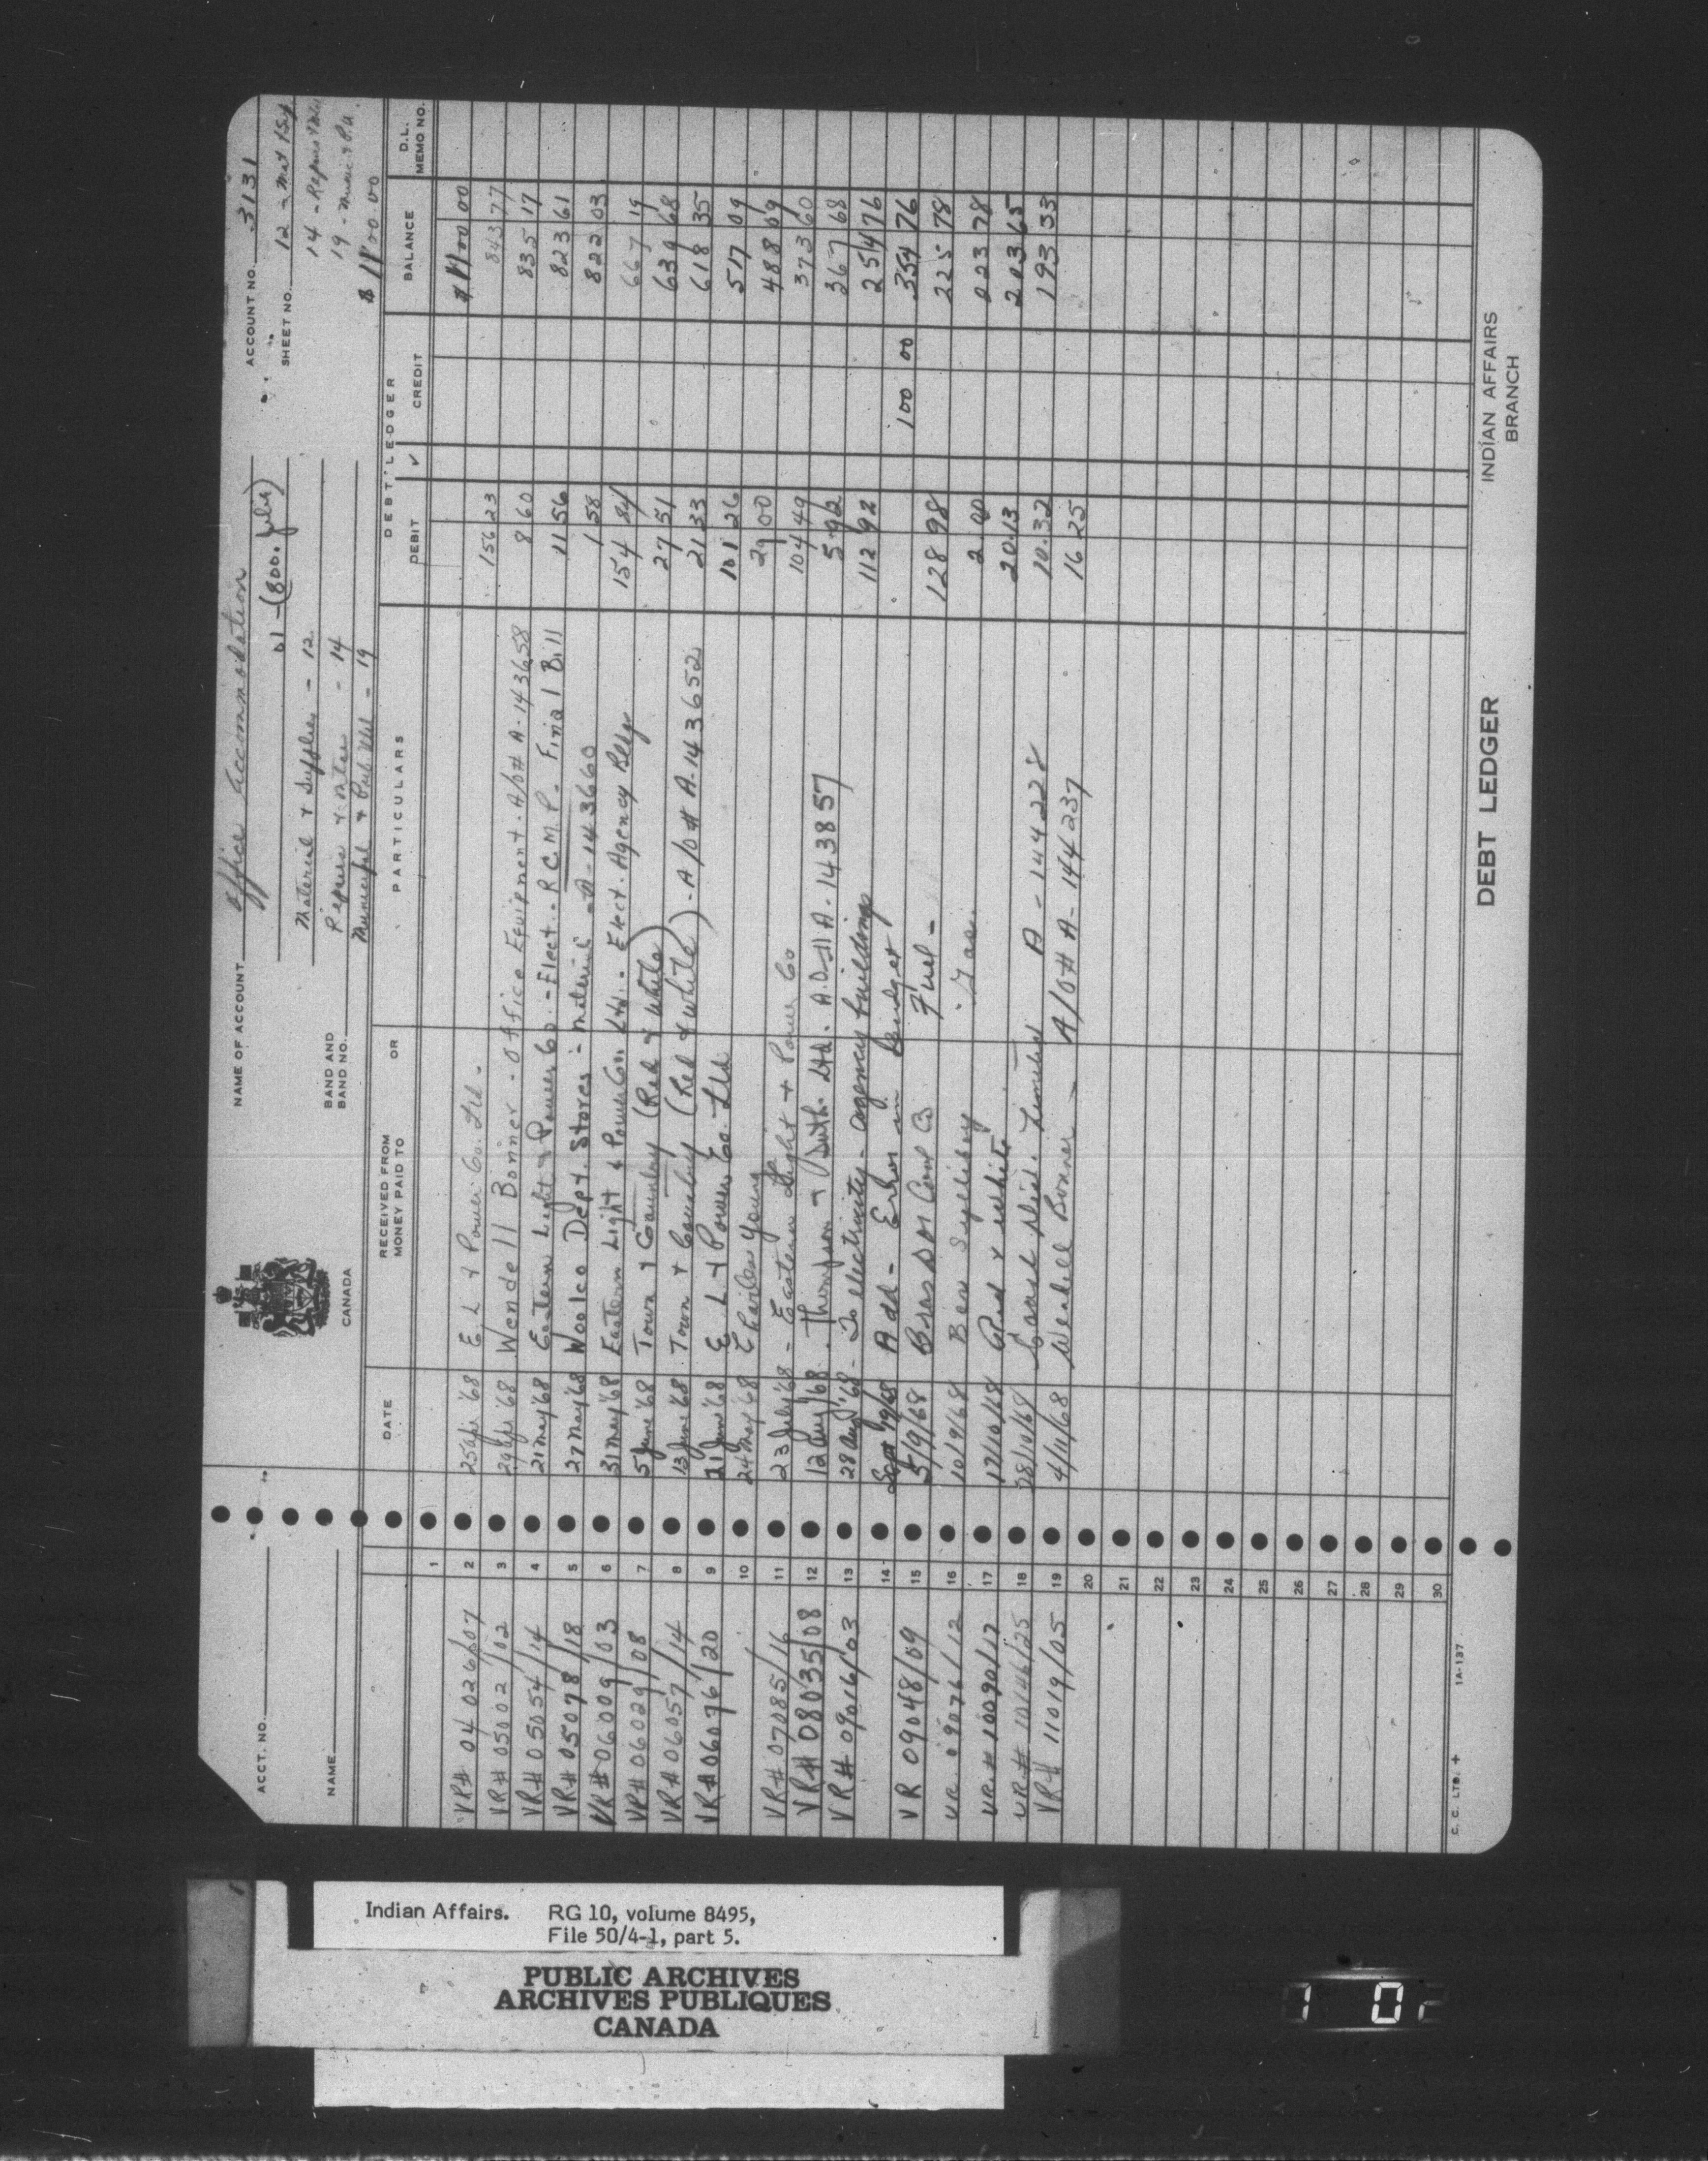 NAME OF ACCOUNT Office Accommodation
ACCOUNT NO. 3131
01 - (800. July)
SHEET NO. 12 - Mat + Sup
Material & Supplies - 12
14 - Repairs +
BAND AND
BAND NO.
Repairs - 14
19 - Munic + P.U.
Municipal + Pub Util - 19
$ 1100 00
CANADA
ACCT. NO.
NAME
DATE
RECEIVED FROM
MONEY PAID TO
OR
PARTICULARS
DEBT LEDGER
DEBIT
✓
CREDIT
BALANCE
D.L.
MEMO NO.
1 $ 1100 00
VR# 04026/07 2 25 Apr '68 E. L + Power Co. Ltd - 156 23 843 77
VR# 05002/02 3 29 Apr '68 Wendell Bonner - Office Equipment - A/O# A-143658 8 60 835 17
VR# 05054/14 4 21 May '68 Eastern Light & Power Co. - Elect. - R.C.M.P. Final Bill 11 56 823 61
VR# 05078/18 5 27 May '68 Woolco Dept. Stores - material - A-143660 1 58 822 03
VR# 06009/03 6 31 May '68 Eastern Light & Power Co. Ltd. - Elect. Agency Bldg 154 84 667 19
VR# 06029/08 7 5 June '68 Town & Country (Red & White) 27 51 639 68
VR# 06057/14 8 13 June '68 Town + Country (Red & White) - A/O# A-143652 21 33 618 35
VR# 06076/20 9 21 June '68 E. L + Power Co. Ltd 101 26 517 09
10 24 May '68 Charles Young 29 00 488 09
VR# 07085/16 11 23 July '68 - Eastern Light + Power Co 104 49 373 60
VR# 08035/08 12 12 Aug '68 - Thompson + Suth. Ltd. A.O.# A-143857 5 92 367 68
VR# 09016/03 13 28 Aug '68 - To electricity - agency buildings 112 92 254 76
14 Sept 19/68 Add - Error in Budget 100 00 354 76
VR 09048/09 15 5/9/68 Brasdor Coal Co Fuel - 128 98 225 78
VR 09076/12 16 10/9/68 Ben Syylibay Gas. 2.00 223 78
VR.# 10090/17 17 17/10/68 Red & white 20.13 203 65
VR# 10146/25 18 28/10/68 Coast Dist. Limited A-144228 10.32 193 33
VR# 11019/05 19 4/11/68 Wendell Bonner - A/O# A-144237 16 25
20
21
22
23
24
25
26
27
28
29
30
C. C. LTD. +
IA-137
DEBT LEDGER
INDIAN AFFAIRS
BRANCH
Indian Affairs. RG 10, volume 8495,
File 50/4-1, part 5.
PUBLIC ARCHIVES
ARCHIVES PUBLIQUES
CANADA
1 02